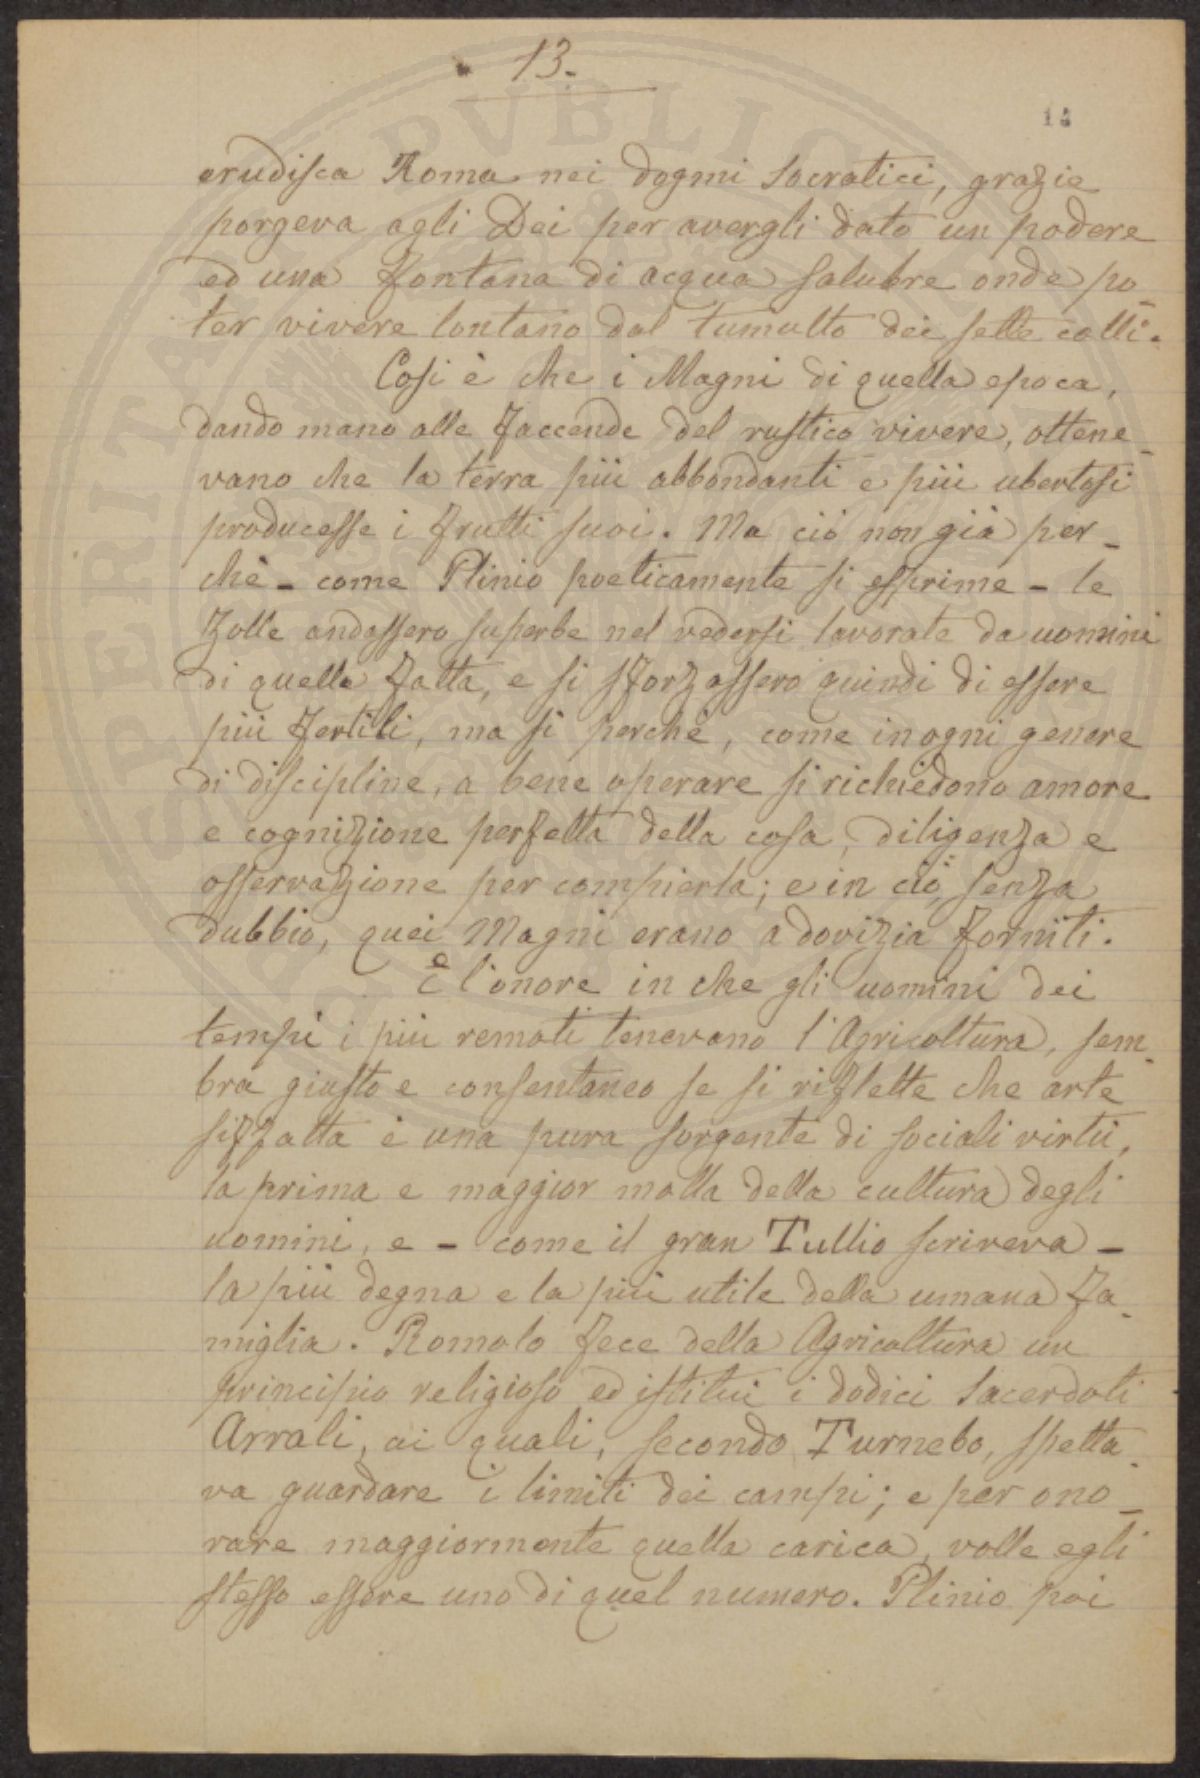 13.
14
erudisca Roma nei dogmi Socratici, grazie
porgeva agli Dei per avergli dato un podere
ed una fontana di acqua salubre onde po_
ter vivere lontano dal tumulto dei sette colli.
Cosi è che i Magni di quella epoca,
dando mano alle faccende del rustico vivere, ottene_
vano che la terra più abbondanti e più ubertosi
producesse i frutti suoi. Ma ciò non già per_
chè - come Plinio poeticamente si esprime - le
zolle andassero superbe nel vedersi lavorate da uomini
di quella fatta, e si sforzassero quindi di essere
più fertili, ma si perchè, come in ogni genere
di discipline, a bene operare si richiedono amore
e cognizione perfetta della cosa, diligenza e
osservazione per compierla; e in ciò, senza
dubbio, quei Magni erano a dovizia forniti.
E l'onore in che gli uomini dei
tempi i più remoti tenevano l'Agricoltura, sem_
bra giusto e consentaneo se si riflette che arte
siffatta è una pura sorgente di sociali virtù,
la prima e maggior molla della cultura degli
uomini, e - come il gran Tullio scriveva -
la più degna e la più utile della umana fa_
miglia. Romolo fece della Agricoltura un
principio religioso ed istituì i dodici Sacerdoti
Arvali, ai quali, secondo Turnebo, spetta_
va guardare i limiti dei campi; e per ono_
rare maggiormente quella carica, volle egli
stesso essere uno di quel numero. Plinio poi